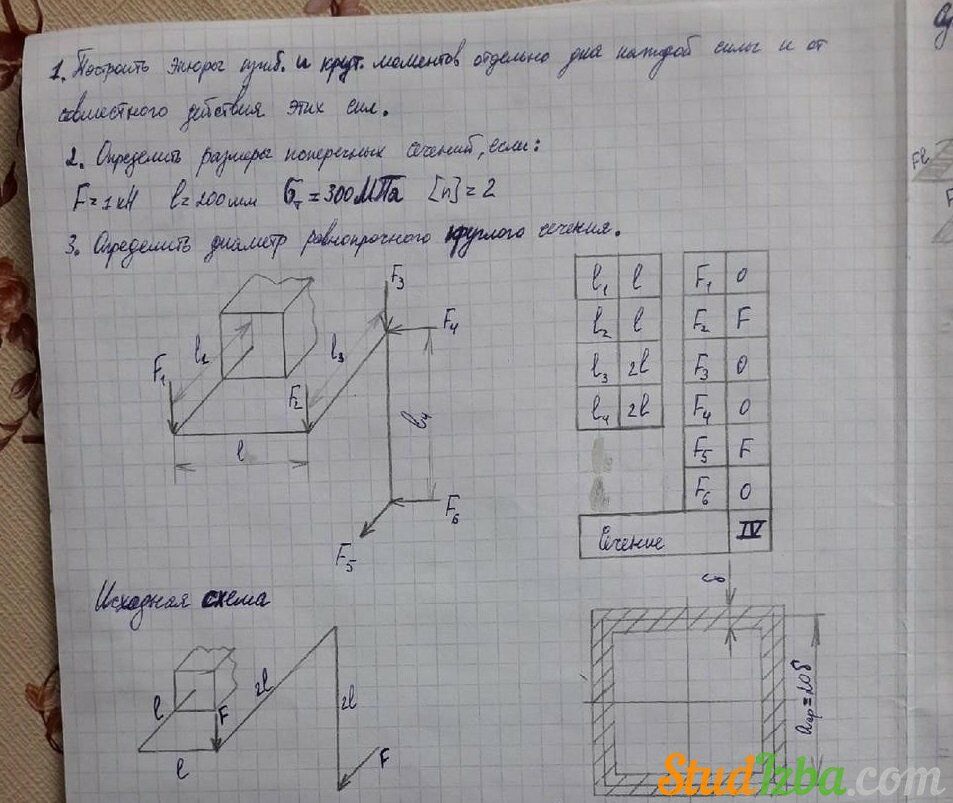 1. Построить эпюры изгиб. и крут. моментов отдельно для каждой силы и от
совместного действия этих сил.
2. Определить размеры поперечных сечений, если:
F=1кН l=200мм σт=300МПа [n]=2
3. Определить диаметр равнопрочного круглого сечения.
F3
F4
l1
l3
F1
F2
l4
l
F6
F5
l1 l F1 0
l2 l F2 F
l3 2l F3 0
l4 2l F4 0
F5 F
F6 0
Сечение IV
Исходная схема
l
F
2l
2l
l
F
δ
aср=20δ
Fl
StudIzba.com